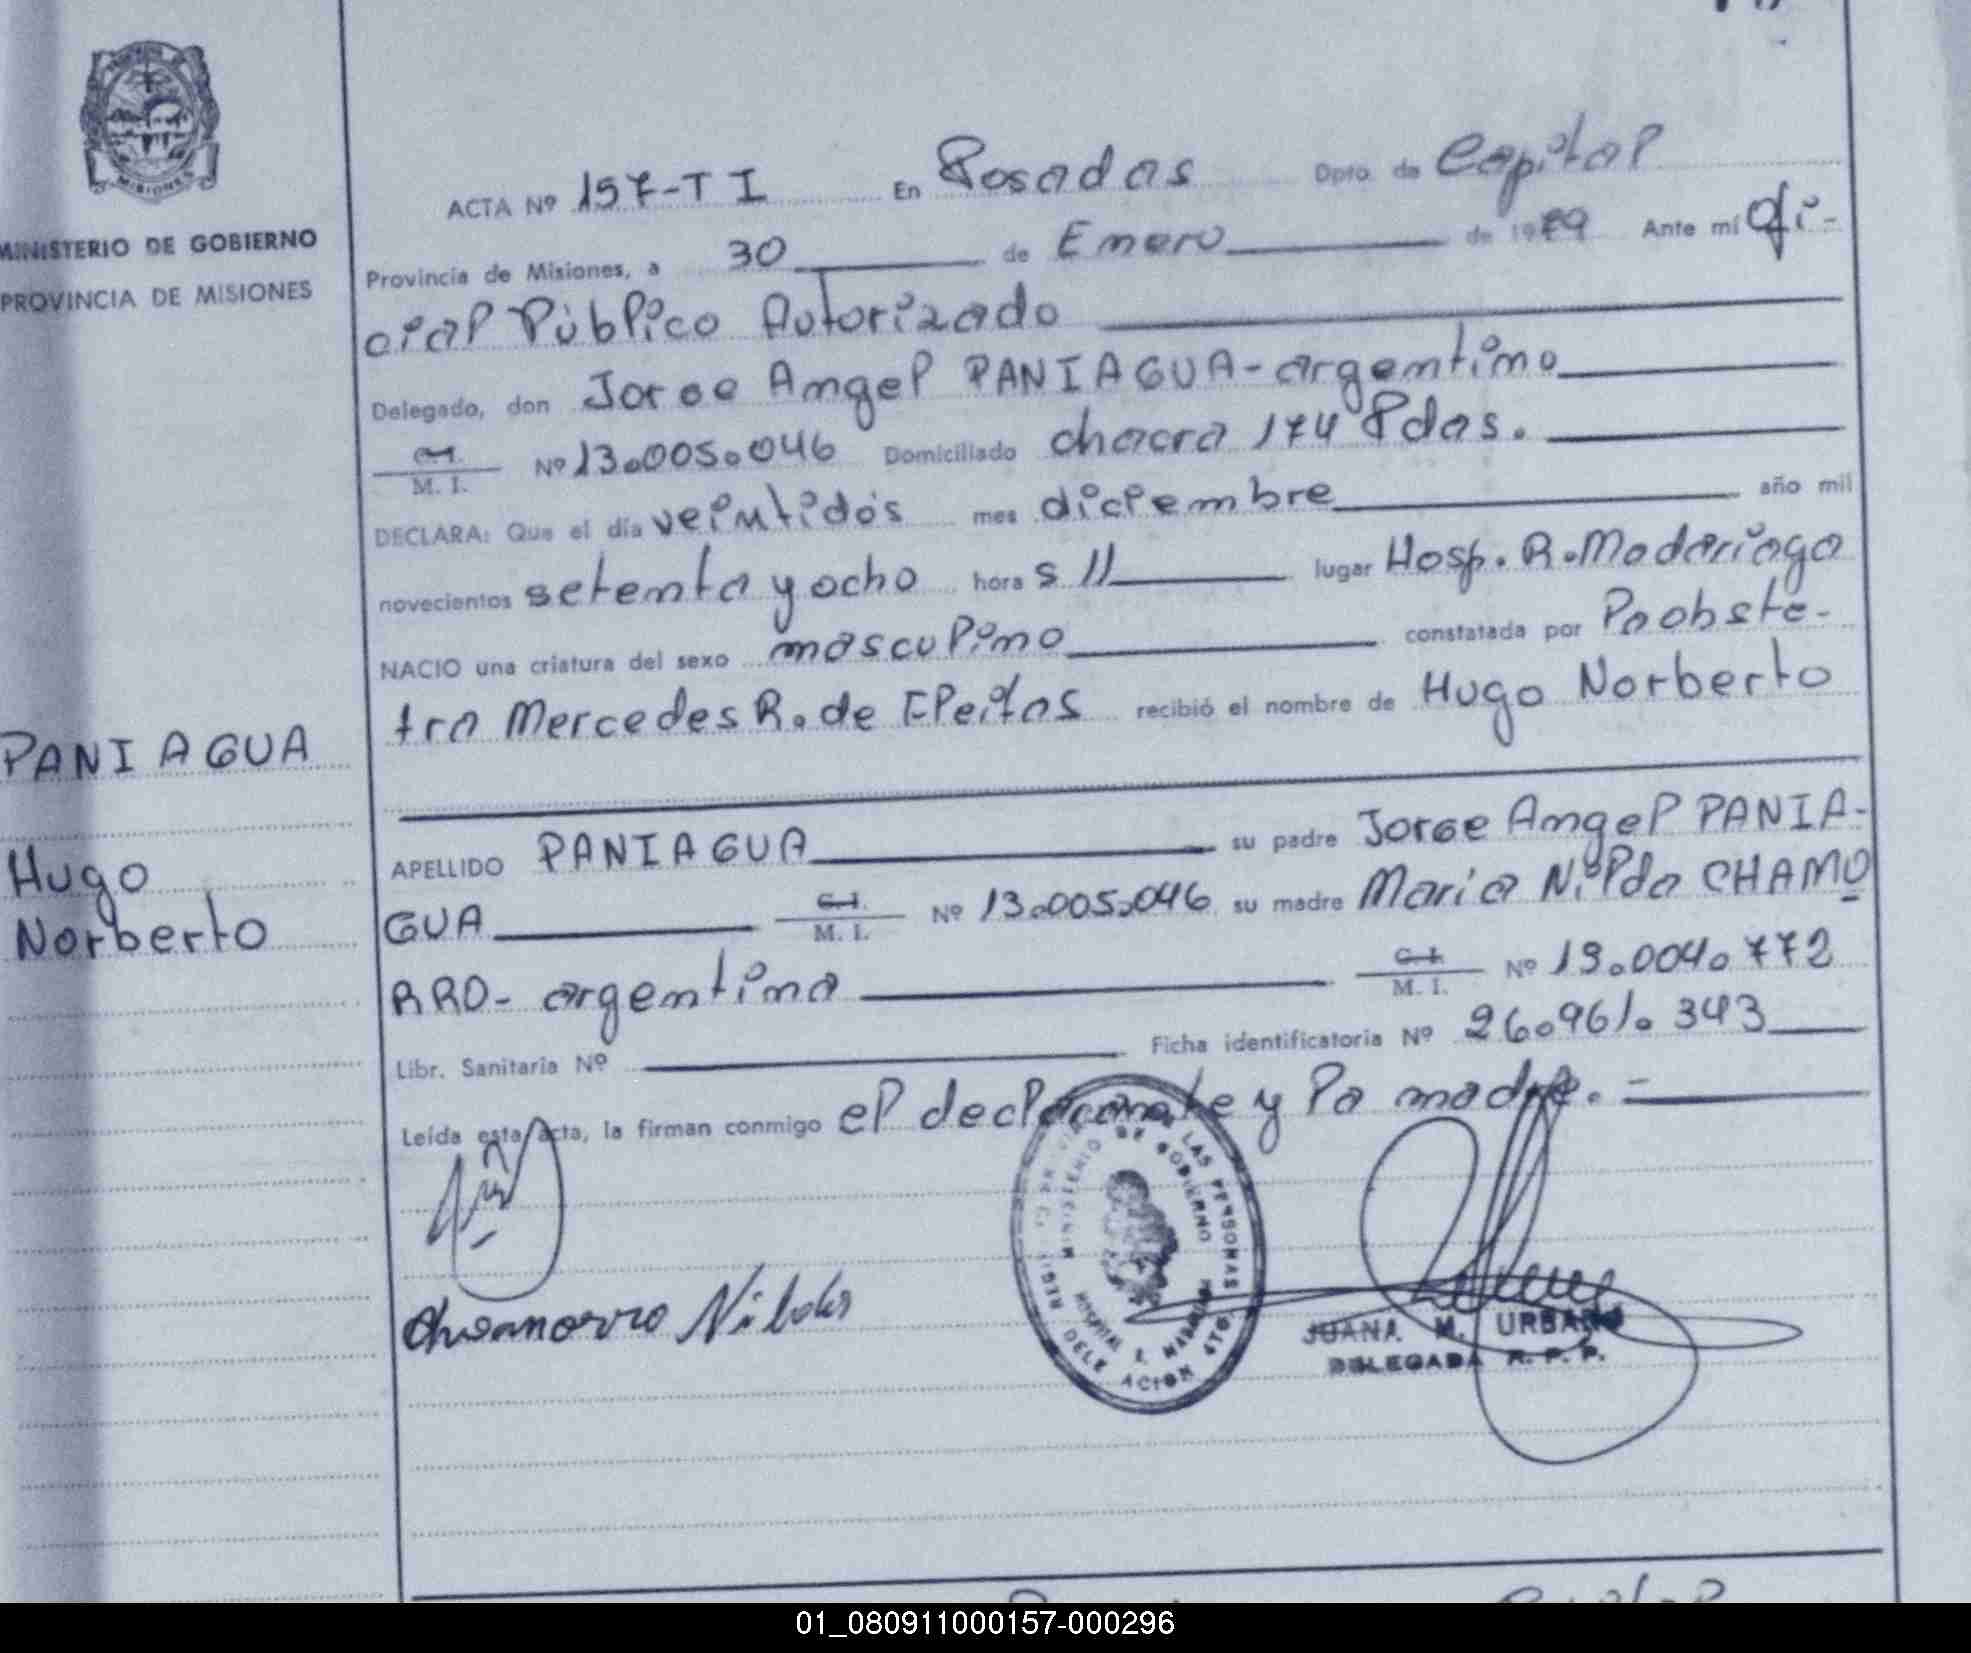 MISIONES
MINISTERIO DE GOBIERNO
PROVINCIA DE MISIONES
ACTA Nº 157-T I En Posadas Dpto. de Capital
Provincia de Misiones, a 30 de Enero de 1979 Ante mí Ofi-
cial Público Autorizado
Delegado, don Jorge Angel PANIAGUA-argentino
C.I. M. I. Nº 13.005.046 Domiciliado chacra 174 Pdas.
DECLARA: Que el día veintidós mes diciembre año mil
novecientos setenta y ocho hora s 11 lugar Hosp. R. Madariaga
NACIO una criatura del sexo masculino constatada por la obste-
tra Mercedes R. de recibió el nombre de Hugo Norberto
PANIAGUA
Hugo
Norberto
APELLIDO PANIAGUA su padre Jorge Angel PANIA-
GUA C.I. M. I. Nº 13.005.046 su madre Maria Nilda CHAMO
RRO- argentina C.I. M. I. Nº 13.004.772
Libr. Sanitaria Nº Ficha identificatoria Nº 26.961.343
Leída esta acta, la firman conmigo el declarante y la madre.-
Chamorro Nilda
LAS PERSONAS
MINISTERIO DE GOBIERNO
HOSPITAL R. MADARIAGA
JUANA M. URBANO
DELEGADA R. P. P.
01_080911000157-000296